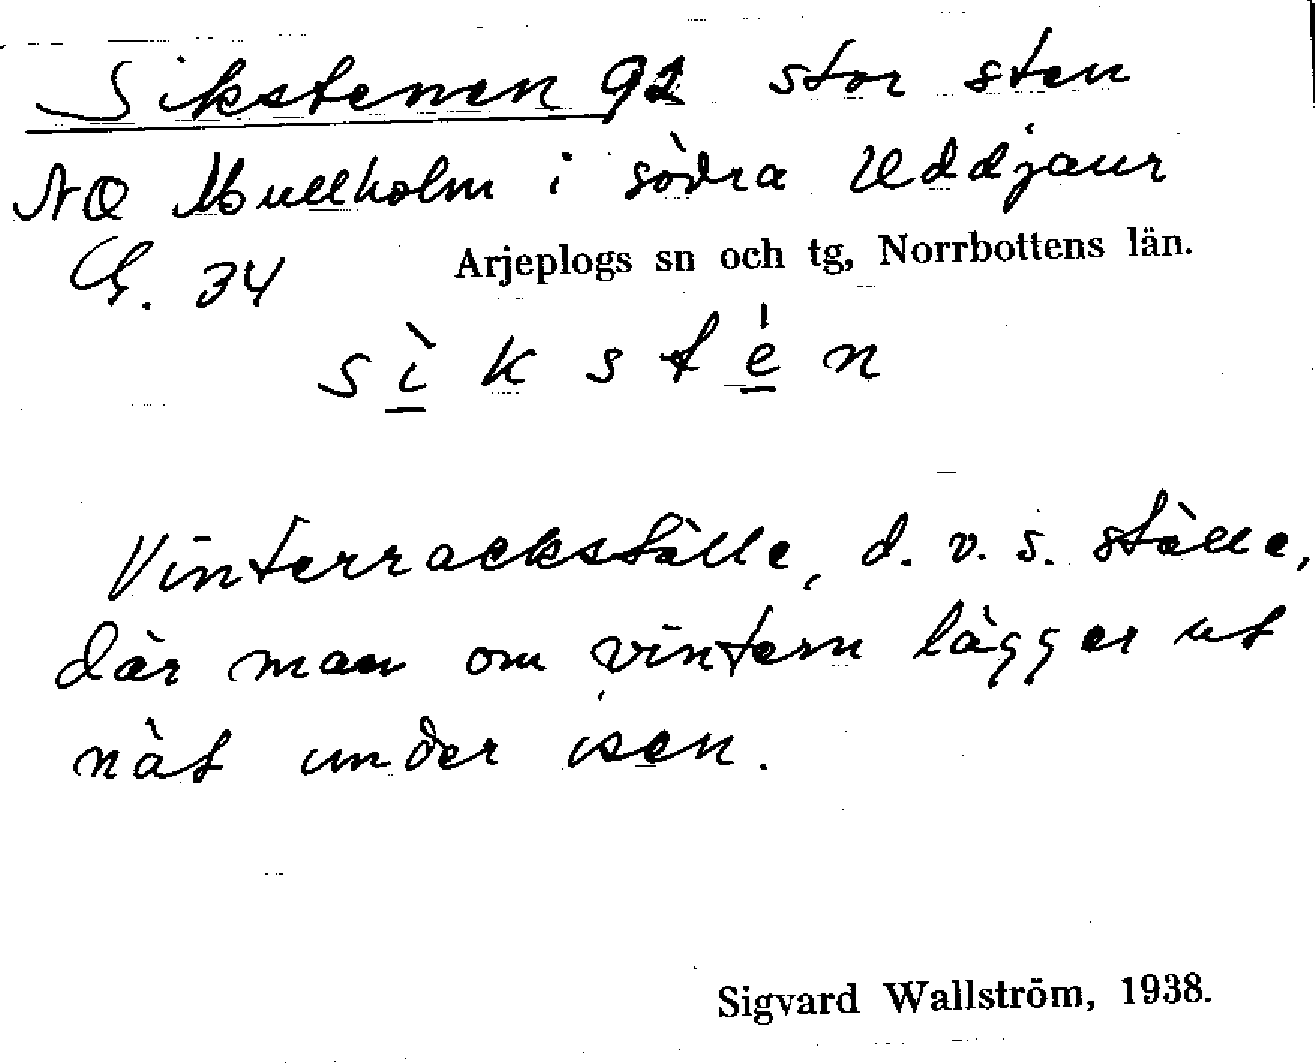 Sikstenen 92 stor sten
NO Mullholm i södra Uddjaur
G. 34 Arjeplogs sn och tg, Norrbottens län.
sìkstén
Vinterrackställe, d. v. s. ställe,
där man om vintern lägger ut
nät under isen.
Sigvard Wallström, 1938.